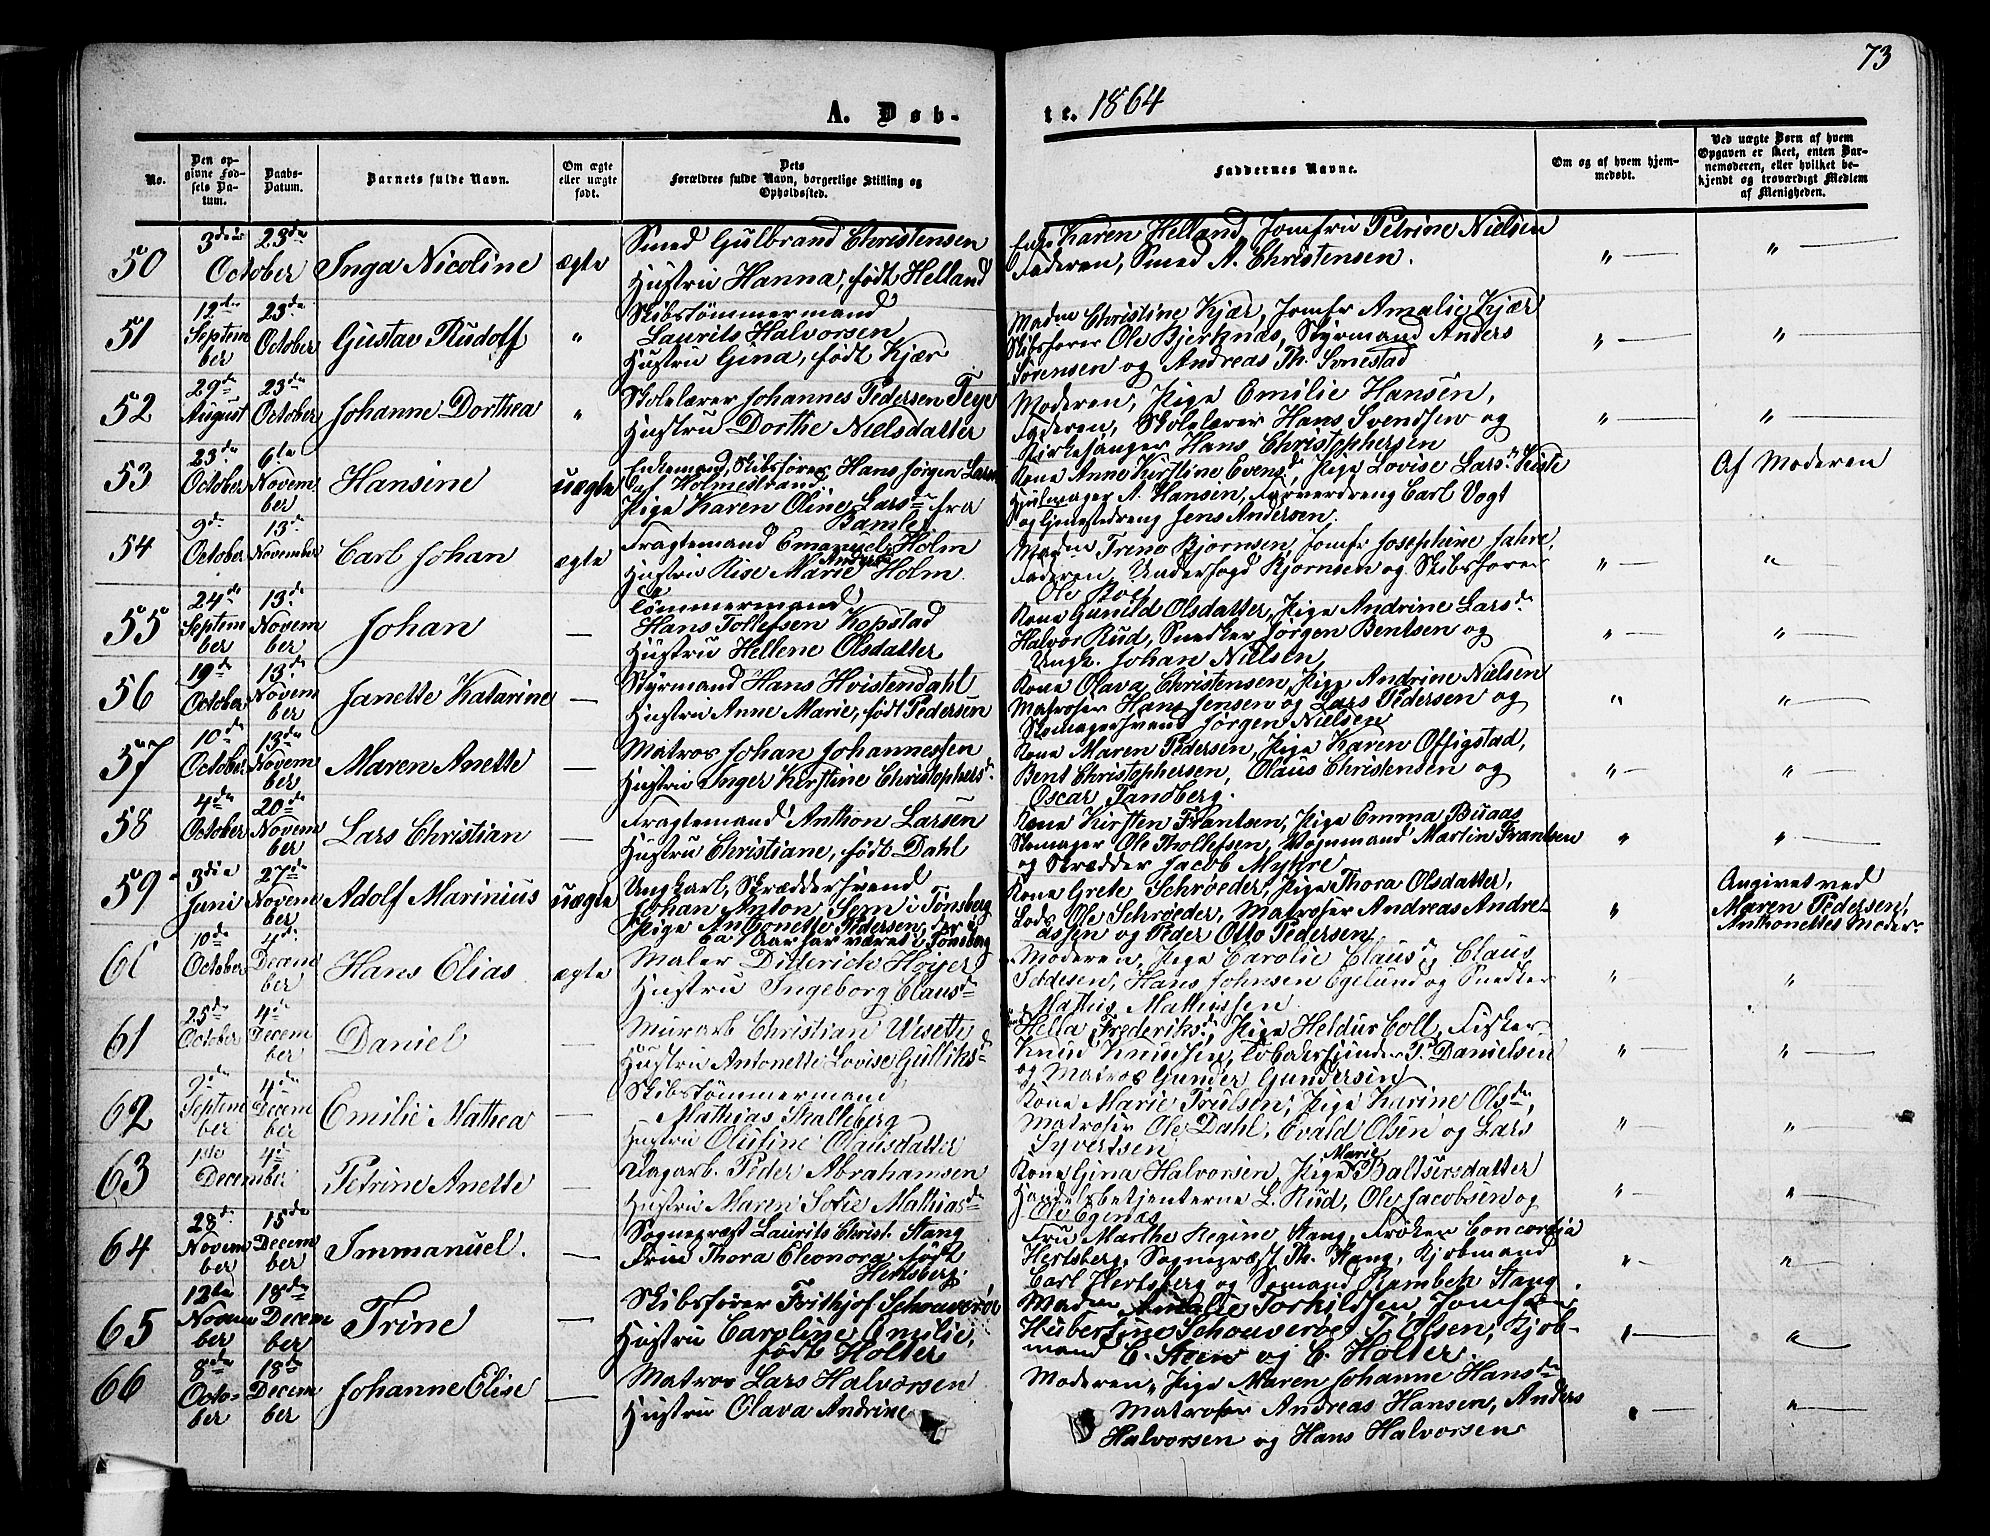 73
A. Døb-
te. 1864
No.
Den op-
givne Fød-
sels Da-
tum.
Daabs-
Datum.
Barnets fulde Navn.
Om ægte
eller uægte
født.
Dets
Forældres fulde Navn, borgerlige Stilling og
Opholdssted.
Faddernes Navne.
Om og af hvem hjem-
medøbt.
Ved uægte Børn af hvem
Opgaven er skeet, enten Bar-
nemoderen, eller hvilket be-
kjendt og troværdigt Medlem
af Menigheden.
50
3die 23de
October
Inga Nicoline
ægte
Smed Gulbrand Christensen
Hustru Hanna, født Helland
Enke Karen Helland, Jomfru Petrine Nielsen
Faderen, Smed A. Christensen.
" "
51
12te
Septem
ber
23de
October
Gustav Rudolf
"
Skibstømmermand
Laurits Halvorsen
Hustru Gina, født Kjær
Madm Christine Kjær, Jomfr Amalie Kjær
Skibsfører Ole Bjerknæs, Styrmand Anders
Sørensen og Andreas Th.
" "
52
29de
August
23de
October
Johanne Dorthea
"
Skolelærer Johannes Pedersen Teye
Hustru Dorthe Nielsdatter
Moderen, Pige Emilie Hansen,
Faderen, Skolelærer Hans Svendsen og
Kirkesanger Hans Christophersen
" "
53
23de
October
6te
Novem
ber
Hansine
uægte
Enkemand, Skibsfører Hans Jørgen Larsen
af Holmestrand
Pige Karen Oline Larsdr fra
Bamle
Kone Anne Kirstine Evensdr, Pige Lovise Larsdr
Hjulmager A. Hansen, Farverdreng Carl Vogt
og Tjenestedreng Jens Andersen.
Af Moderen
54
9de
October
13de
November
Carl Johan
ægte
Fragtemand Emanuel Holm
Hustru Rise Marie Holm
Madm Treno Bjørnsen, Jomfr Josephine Jahre,
Faderen, Underfogd Bjørnsen og Skibsfører
Ole
" "
55
24de
Septem
ber
13de
Novem
ber
Johan
—
Tømmermand
Hans Tollefsen Kopstad
Hustru Hellene Olsdatter
Kone Gunild Olsdatter, Pige Andrine Larsdr
Halvor Rud, Snedker Jørgen Bentsen og
Ungk. Johan Nielsen
" "
56
19de
October
13de
Novem
ber
Janette Katarine
—
Styrmand Hans Hvistendahl
Hustru Anne Marie, født Pedersen
Kone Olava Christensen, Pige Andrine Nielsen
Matroser Hans Jensen og Lars Pedersen og
Skomagersvend Jørgen Nielsen
" "
57
10de
October
13de
Novem
ber
Maren Anette
—
Matros Johan Johannessen
Hustru Inger Kirstine Christophersdr
Kone Maren Pedersen, Pige Karen Offigstad,
Bent Christophersen, Olaus Christensen og
Oscar Tandberg.
" "
58
4de
October
20de
Novem
ber
Lars Christian
—
Fragtemand Anthon Larsen
Hustru Christiane, født Dahl
Kone Kirsten Frantsen, Pige Emma Buaas
Skomager Ole Thollefsen, Vognmand Martin Frantsen
og Skrædder Jacob Myhre
" "
59
3die
Juni
27de
Novem
ber
Adolf Marinius
uægte
Ungkarl, Skræddersvend
Johan Anton Sem i Tønsberg
Pige Anthonette Pedersen, der i
ca 1 Aar har været i Tønsberg
Kone Grete Schrøeder, Pige Thora Olsdatter,
Lods Ole Schrøeder, Matroser Andreas Andre-
assen og Peder Otto Pedersen
"
Angivet ved
Maren Pedersen,
Anthonettes Moder
60
10de
October
4de
Decem
ber
Hans Elias
ægte
Maler Ditterich Høijer
Hustru Ingeborg Clausdr
Moderen, Pige Carolie Clausdr, Claus
Hans Johnsen Egelund og Snedker
Mathis Mathissen
" "
61
25de
October
4de
Decem
ber
Daniel
—
Murarb Christian Wisette
Hustru Antonette Lovise Gulliksdr
Hella Frederiksdr, Pige Heldur Coll, Fisker
Knud Knudsen, Tobaksspinder P. Danielsen
og Matros Gunder Gundersen
" "
62
9de
Septem
ber
4de
Decem
ber
Emilie Mathea
—
Skibstømmermand
Mathias Stalleberg
Hustru Olufine Olausdatter
Kone Marie Trulsen, Pige Karine Olsdr,
Matroser Ole Dahl, Evald Olsen og Lars
Syvertsen
" "
63
1ste 4de
December
Petrine Anette
—
Dagarb. Peder Abrahamsen
Hustru Maren Sofie Mathiasdr
Kone Gina Halvorsen, Pige Marie Baltsersdatter
Handelsbetjenterne L. Rud, Ole Jacobsen og
Ole Egenæs
" "
64
28de
Novem
ber
15de
Decem
ber
Immanuel.
—
Sognepræst Laurits Christ. Stang
Frue Thora Eleonora, født
Hertsberg.
Fru Marthe Regine Stang, Frøken Concordia
Hertsberg, Sognepræst Th. Stang, Kjøbmand
Carl Hertsberg og Sømand Rambech Stang.
" "
65
12te
Novem
ber
18de
Decem
ber
Trine
—
Skibsfører Frithjof Schouverøe
Hustru Caroline Emilie,
født Holter
Madm Amalie Torkildsen, Jomfru
Hubertine Schouverøe, T. Olsen, Kjøb-
mand C. Steen og C. Holter.
" "
66
8de
Octo-
ber
18de
Decem
ber
Johanne Elise
—
Matros Lars Halvorsen
Hustru Olava Andrine
Moderen, Pige Maren Johanne Hansdr
Matroser Andreas Hansen, Anders
Halvorsen og Hans Halvorsen
" "